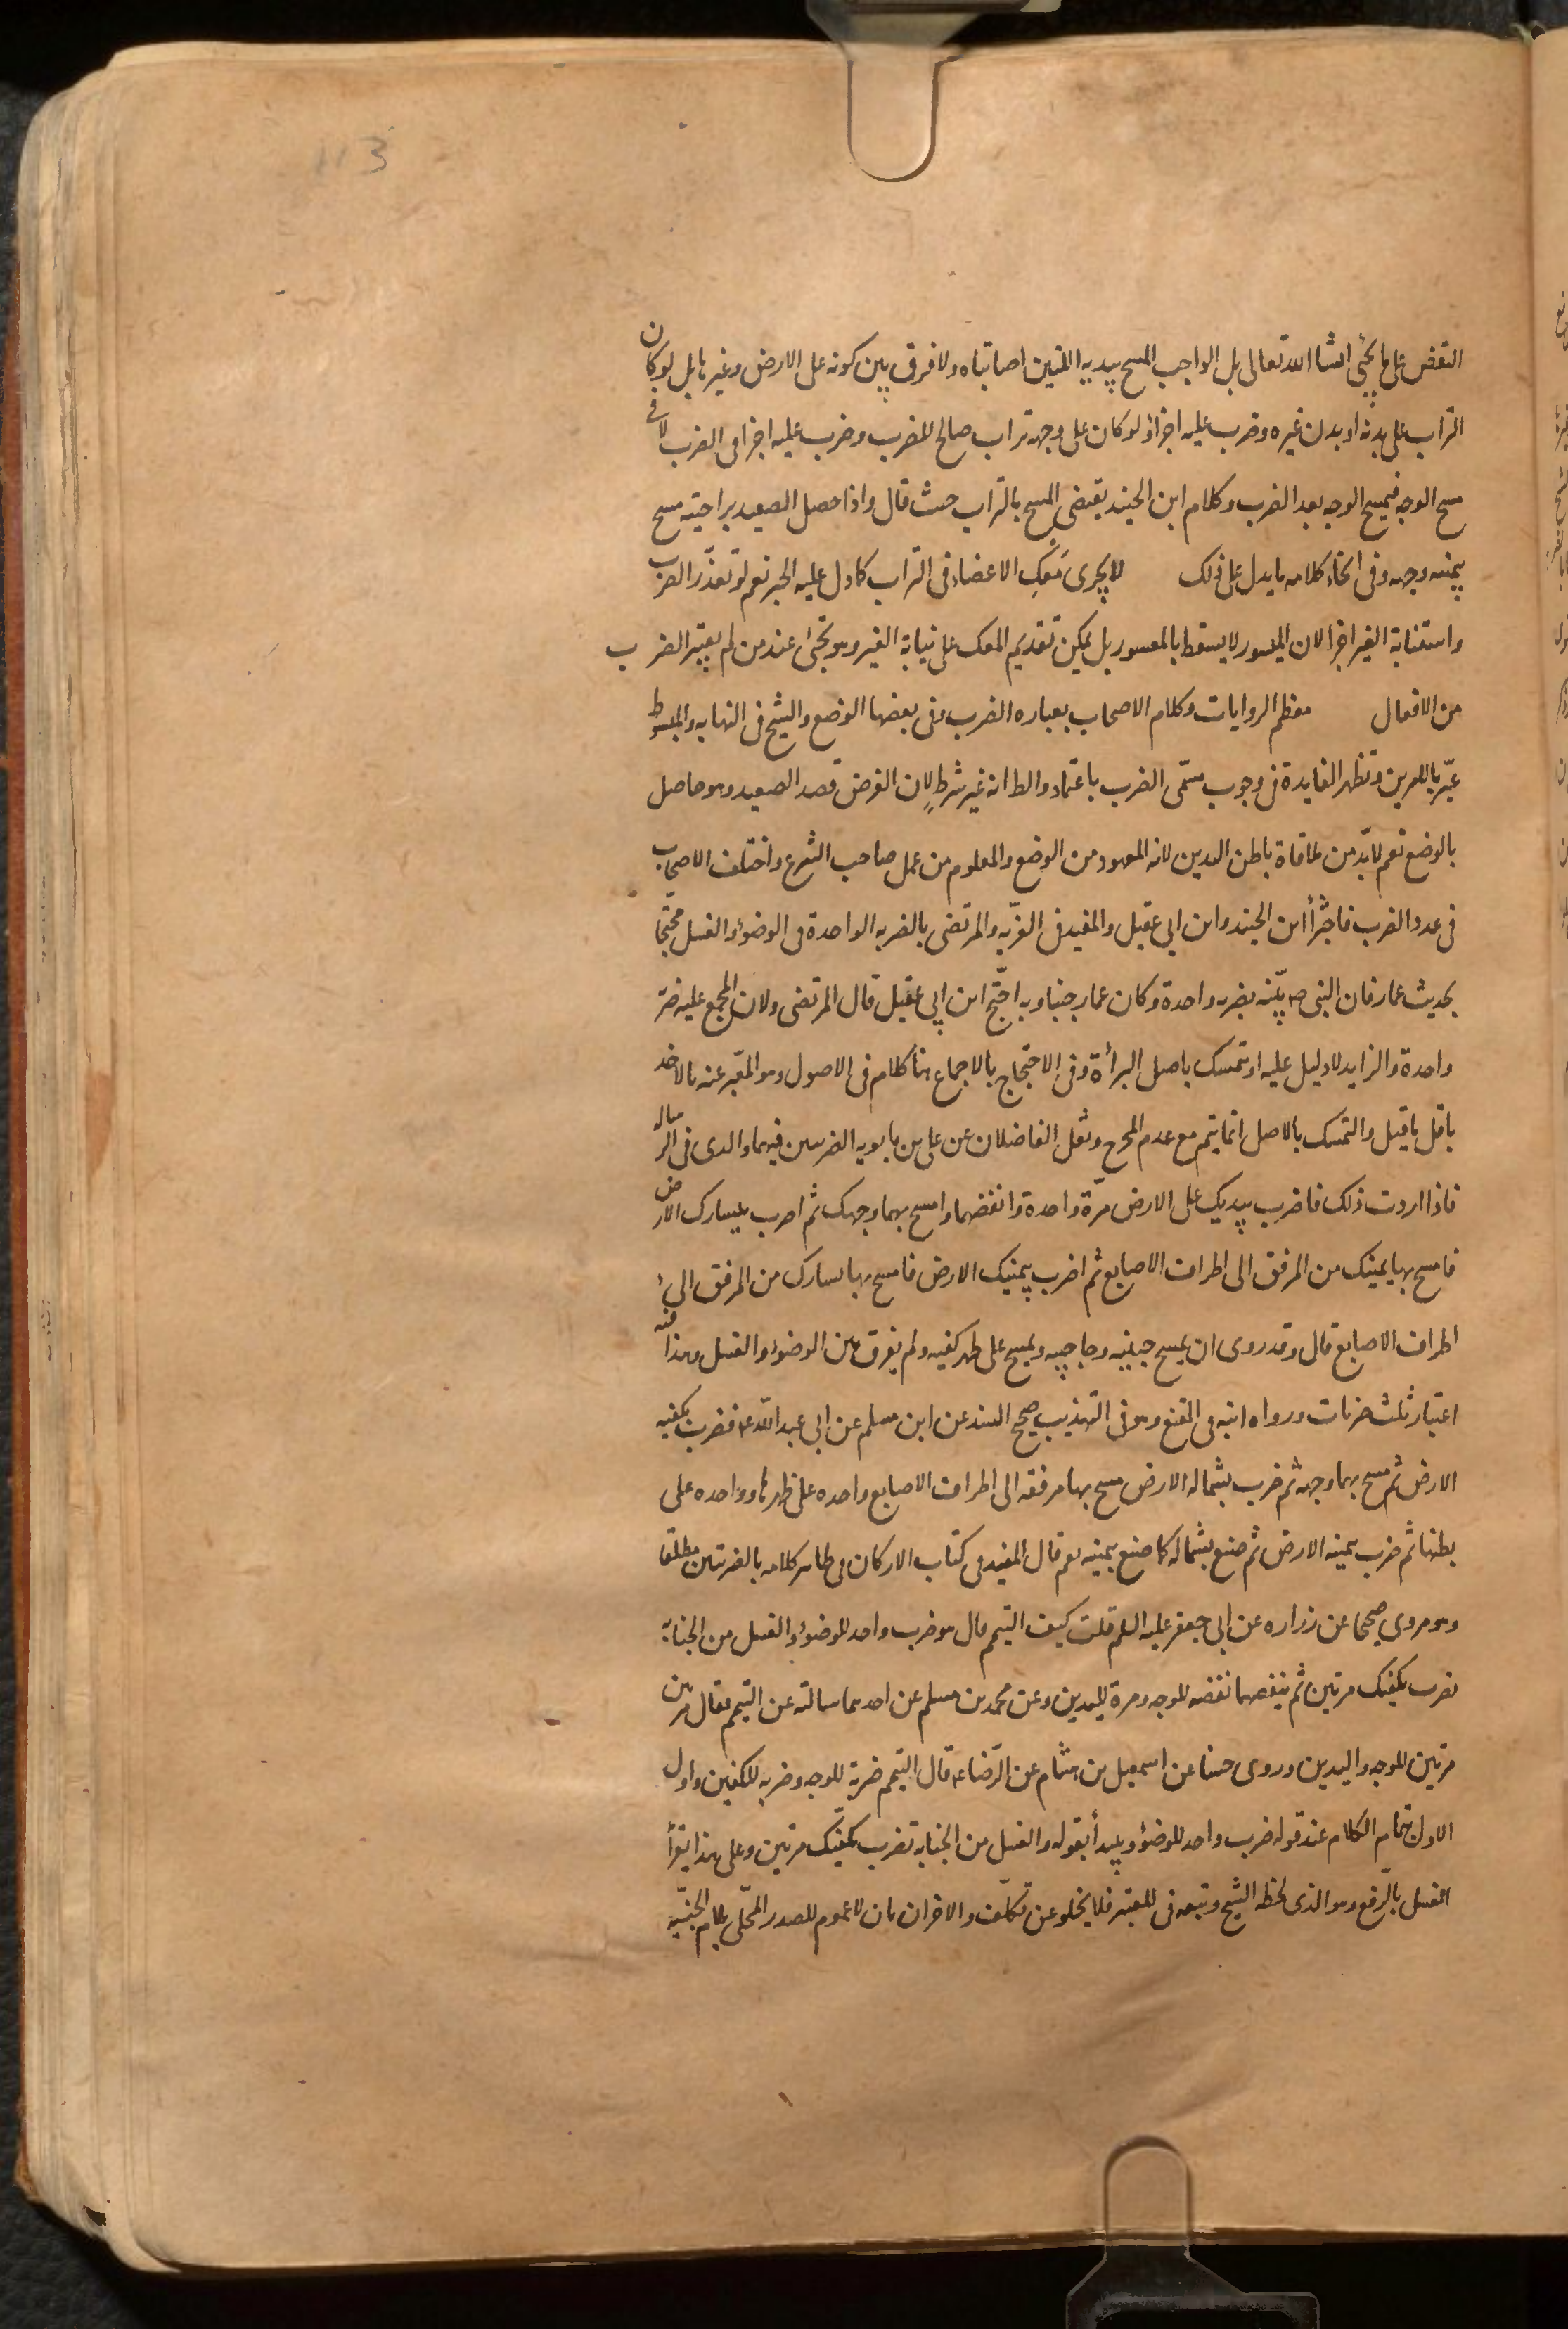 113
النفض على ما يجئ انشا الله تعالى بل الواجب المسح بيديه اللتين اصابتاه ولا فرق بين كونه على الارض وغيرها بل لو كان
التراب على بدنه او بدن غيره وضرب عليه اجزأ ولو كان على وجهه تراب صالح للضرب وضرب عليه اجزا فى الضرب لا فى
مسح الوجه فيمسح الوجه بعد الضرب وكلام ابن الجنيد يقتضى المسح بالتراب حيث قال واذا حصل الصعيد براحتيه مسح
بيمينه وجهه وفى اثناء كلامه ما يدل على ذلك لا يجزى مَعك الاعضاء فى التراب كما دل عليه الخبر نعم لو تعذّر الضرب
واستنابة الغير اجزا لان الميسور لا يسقط بالمعسور بل يمكن تقديم المعك على نيابة الغير وهو مجزئ عند من لم يعتبر الضرب
من الافعال معظم الروايات وكلام الاصحاب بعباره الضرب وفى بعضها الوضع والشيخ فى النهايه والمبسوط
عبّر بالامرين وتظهر الفايدة فى وجوب مسمّى الضرب باعتماد والظ انه غير شرط لان الغرض قصد الصعيد وهو حاصل
بالوضع نعم لابدّ من ملاقاة باطن اليدين لانه المعهود من الوضع والمعلوم من عمل صاحب الشرع واختلف الاصحاب
فى عدد الضرب فاجتزأ ابن الجنيد وابن ابى عقيل والمفيد فى الغريّه والمرتضى بالضربه الواحدة فى الوضوء والغسل محتجّا
بحديث عمار فان النبى ص يمّنه بضربه واحدة وكان عمار جنبا وبه احتجّ ابن ابى عقيل قال المرتضى ولان المجمع عليه ضربة
واحدة والزايد لا دليل عليه او تمسك باصل البرأة وفى الاحتجاج بالاجماع هنا كلام فى الاصول وهو المعبّر عنه بالاخذ
باقل ما قيل والتمسك بالاصل انما يتم مع عدم المخرج ونقل الفاضلان عن على بن بابويه الضربتين فيهما والذى فى الرساله
فاذا اردت ذلك فاضرب بيديك على الارض مرّة واحدة وانفضهما وامسح بهما وجهك ثم اضرب بيسارك الارض
فامسح بها يمينك من المرفق الى اطراف الاصابع ثم اضرب بيمينك الارض فامسح بها يسارك من المرفق الى
اطراف الاصابع قال وقد روى ان يمسح جبينيه وحاجبيه ويمسح على ظهر كفيه ولم يفرق بين الوضوء والغسل وهذا فيه
اعتبار ثلث ضربات ورواه ابنه فى المقنع وهو فى التهذيب صحيح السند عن ابن مسلم عن ابى عبد الله ع فضرب بكفيه
الارض ثم مسح بهما وجهه ثم ضرب بشماله الارض مسح بها مرفقه الى اطراف الاصابع واحده على ظهرها وواحده على
بطنها ثم ضرب بيمينه الارض ثم صنع بشماله كما صنع بيمينه نعم قال المفيد فى كتاب الاركان فى ظاهر كلامه بالضربتين مطلقا
وهو مروى صحيحا عن زراره عن ابى جعفر عليه السلم قلت كيف التيمم قال هو ضرب واحد للوضوء والغسل من الجنابة
تضرب بكفيك مرتين ثم تنفضهما نفضه للوجه ومرة لليدين وعن محمد بن مسلم عن احدهما سالته عن التيمم فقال مرتين
مرتين للوجه واليدين وروى حسنا عن اسمعيل بن هشام عن الرّضا ع قال التيمم ضربة للوجه وضربه للكفين واول
الاول بتمام الكلام عند قوله ضرب واحد للوضوء ويبدأ بقوله والغسل من الجنابة تضرب بكفيك مرتين وعلى هذا يقرأ
الغسل بالرفع وهو الذى لحظه الشيخ وتبعه فى المعتبر فلا يخلو عن تكلّف والاقران بان لا عموم للمصدر المحّلى بلام الجنسيّه